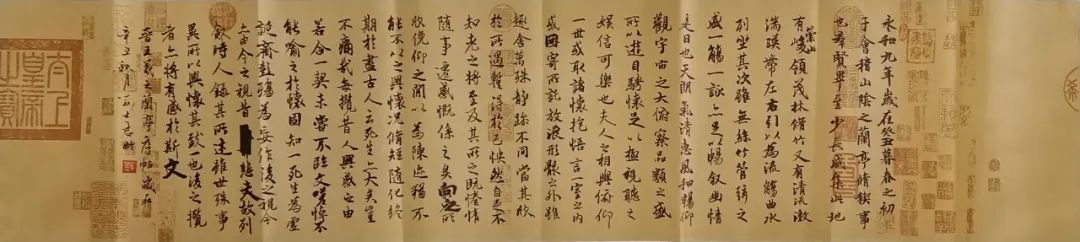 永和九年歲在癸丑暮春之初
于會稽山陰之蘭亭脩稧事
也羣賢畢至少長咸集此地
有崇山峻領茂林脩竹又有清流激
湍暎帶左右引以為流觴曲水
列坐其次雖無絲竹管弦之
盛一觴一詠亦足以暢叙幽情
是日也天朗氣清惠風和暢仰
觀宇宙之大俯察品類之盛
所以遊目騁懷足以極視聽之
娛信可樂也夫人之相與俯仰
一世或取諸懷抱悟言一室之內
或因寄所託放浪形骸之外雖
趣舍萬殊靜躁不同當其欣
於所遇暫得於己怏然自足不
知老之將至及其所之既惓情
隨事遷感慨係之矣向之所
欣俛仰之間以為陳迹猶不
能不以之興懷況脩短隨化終
期於盡古人云死生亦大矣豈
不痛哉每攬昔人興感之由
若合一契未嘗不臨文嗟悼不
能喻之於懷固知一死生為虛
誕齊彭殤為妄作後之視今
亦由今之視昔悲夫故列
敘時人錄其所述雖世殊事
異所以興懷其致一也後之攬
者亦將有感於斯文
晉王羲之蘭亭序帖歲在
辛丑秋月
太上皇帝之寶